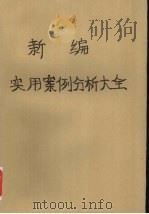 新编
实用案例分析大全